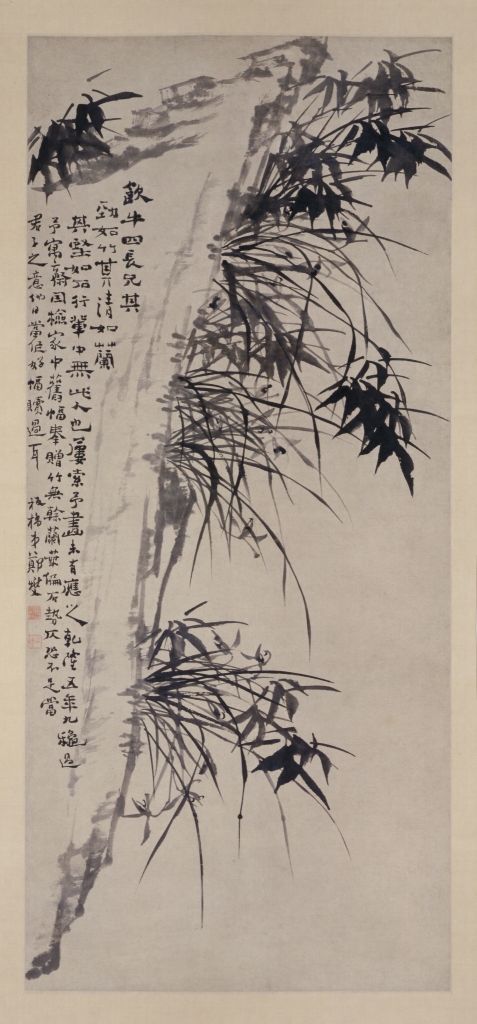 歙牛四長兄其
勁如竹其清如蘭
其堅如石行輩中無此人也屢索予畫未有應之乾隆五年九龝過
予寓齋因檢家中舊幅奉贈竹無餘蘭葉偏石勢仄恐不足當
君子之意他日當作好幅贖過耳 板橋弟鄭燮